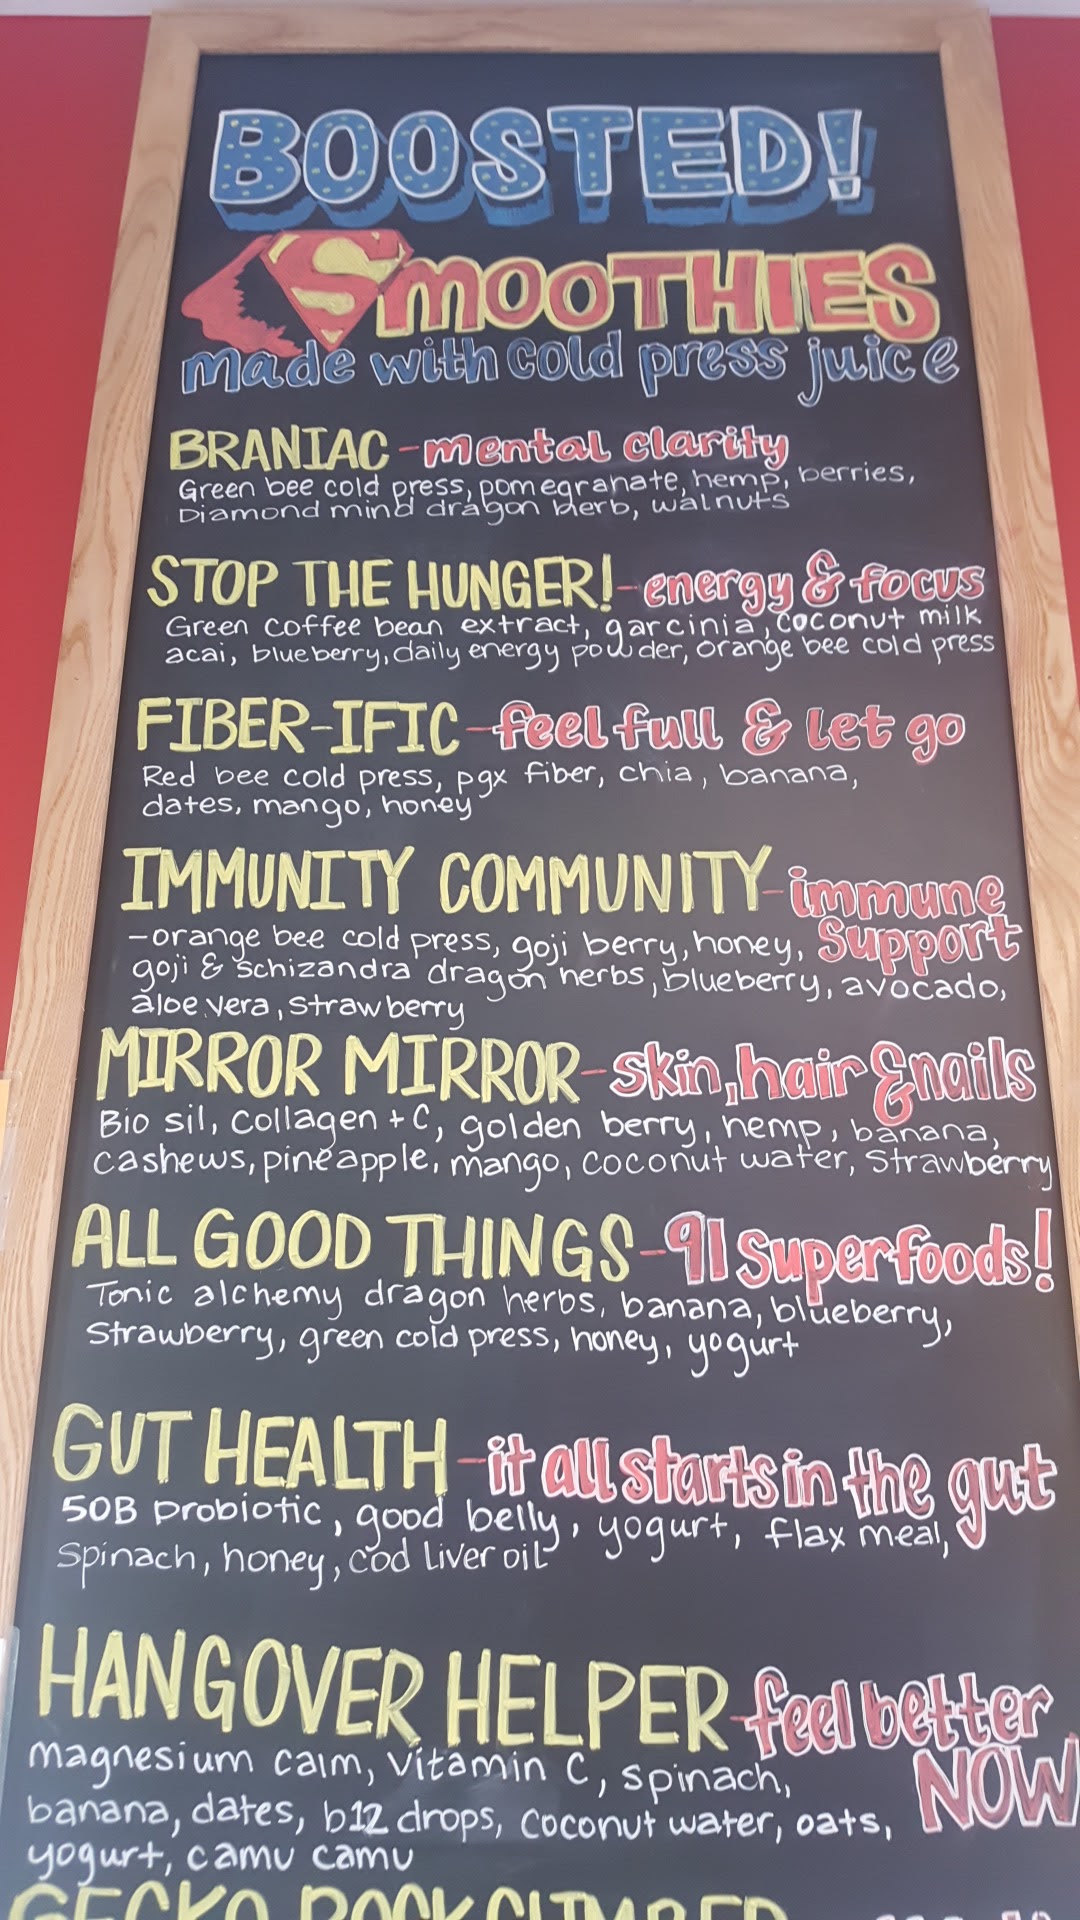 BOOSTED!
SMOOTHIES
made with cold press juice
BRANIAC - mental clarity
Green bee cold press, pomegranate, hemp, berries,
Diamond mind dragon herb, walnuts
STOP THE HUNGER! - energy & focus
Green coffee bean extract, garcinia, coconut milk
acai, blueberry, daily energy powder, orange bee cold press
FIBER-IFIC - feel full & let go
Red bee cold press, pgx fiber, chia, banana,
dates, mango, honey
IMMUNITY COMMUNITY - immune
support
- orange bee cold press, goji berry, honey,
goji & schizandra dragon herbs, blueberry, avocado,
aloe vera, strawberry
MIRROR MIRROR - skin, hair & nails
Bio sil, collagen + C, golden berry, hemp, banana,
cashews, pineapple, mango, coconut water, strawberry
ALL GOOD THINGS - 91 superfoods!
Tonic alchemy dragon herbs, banana, blueberry,
strawberry, green cold press, honey, yogurt
GUT HEALTH - it all starts in the gut
50B probiotic, good belly, yogurt, flax meal,
spinach, honey, cod liver oil
HANGOVER HELPER - feel better
NOW
magnesium calm, vitamin C, spinach,
banana, dates, b12 drops, coconut water, oats,
yogurt, camu camu
GECKO ROCK CLIMBER